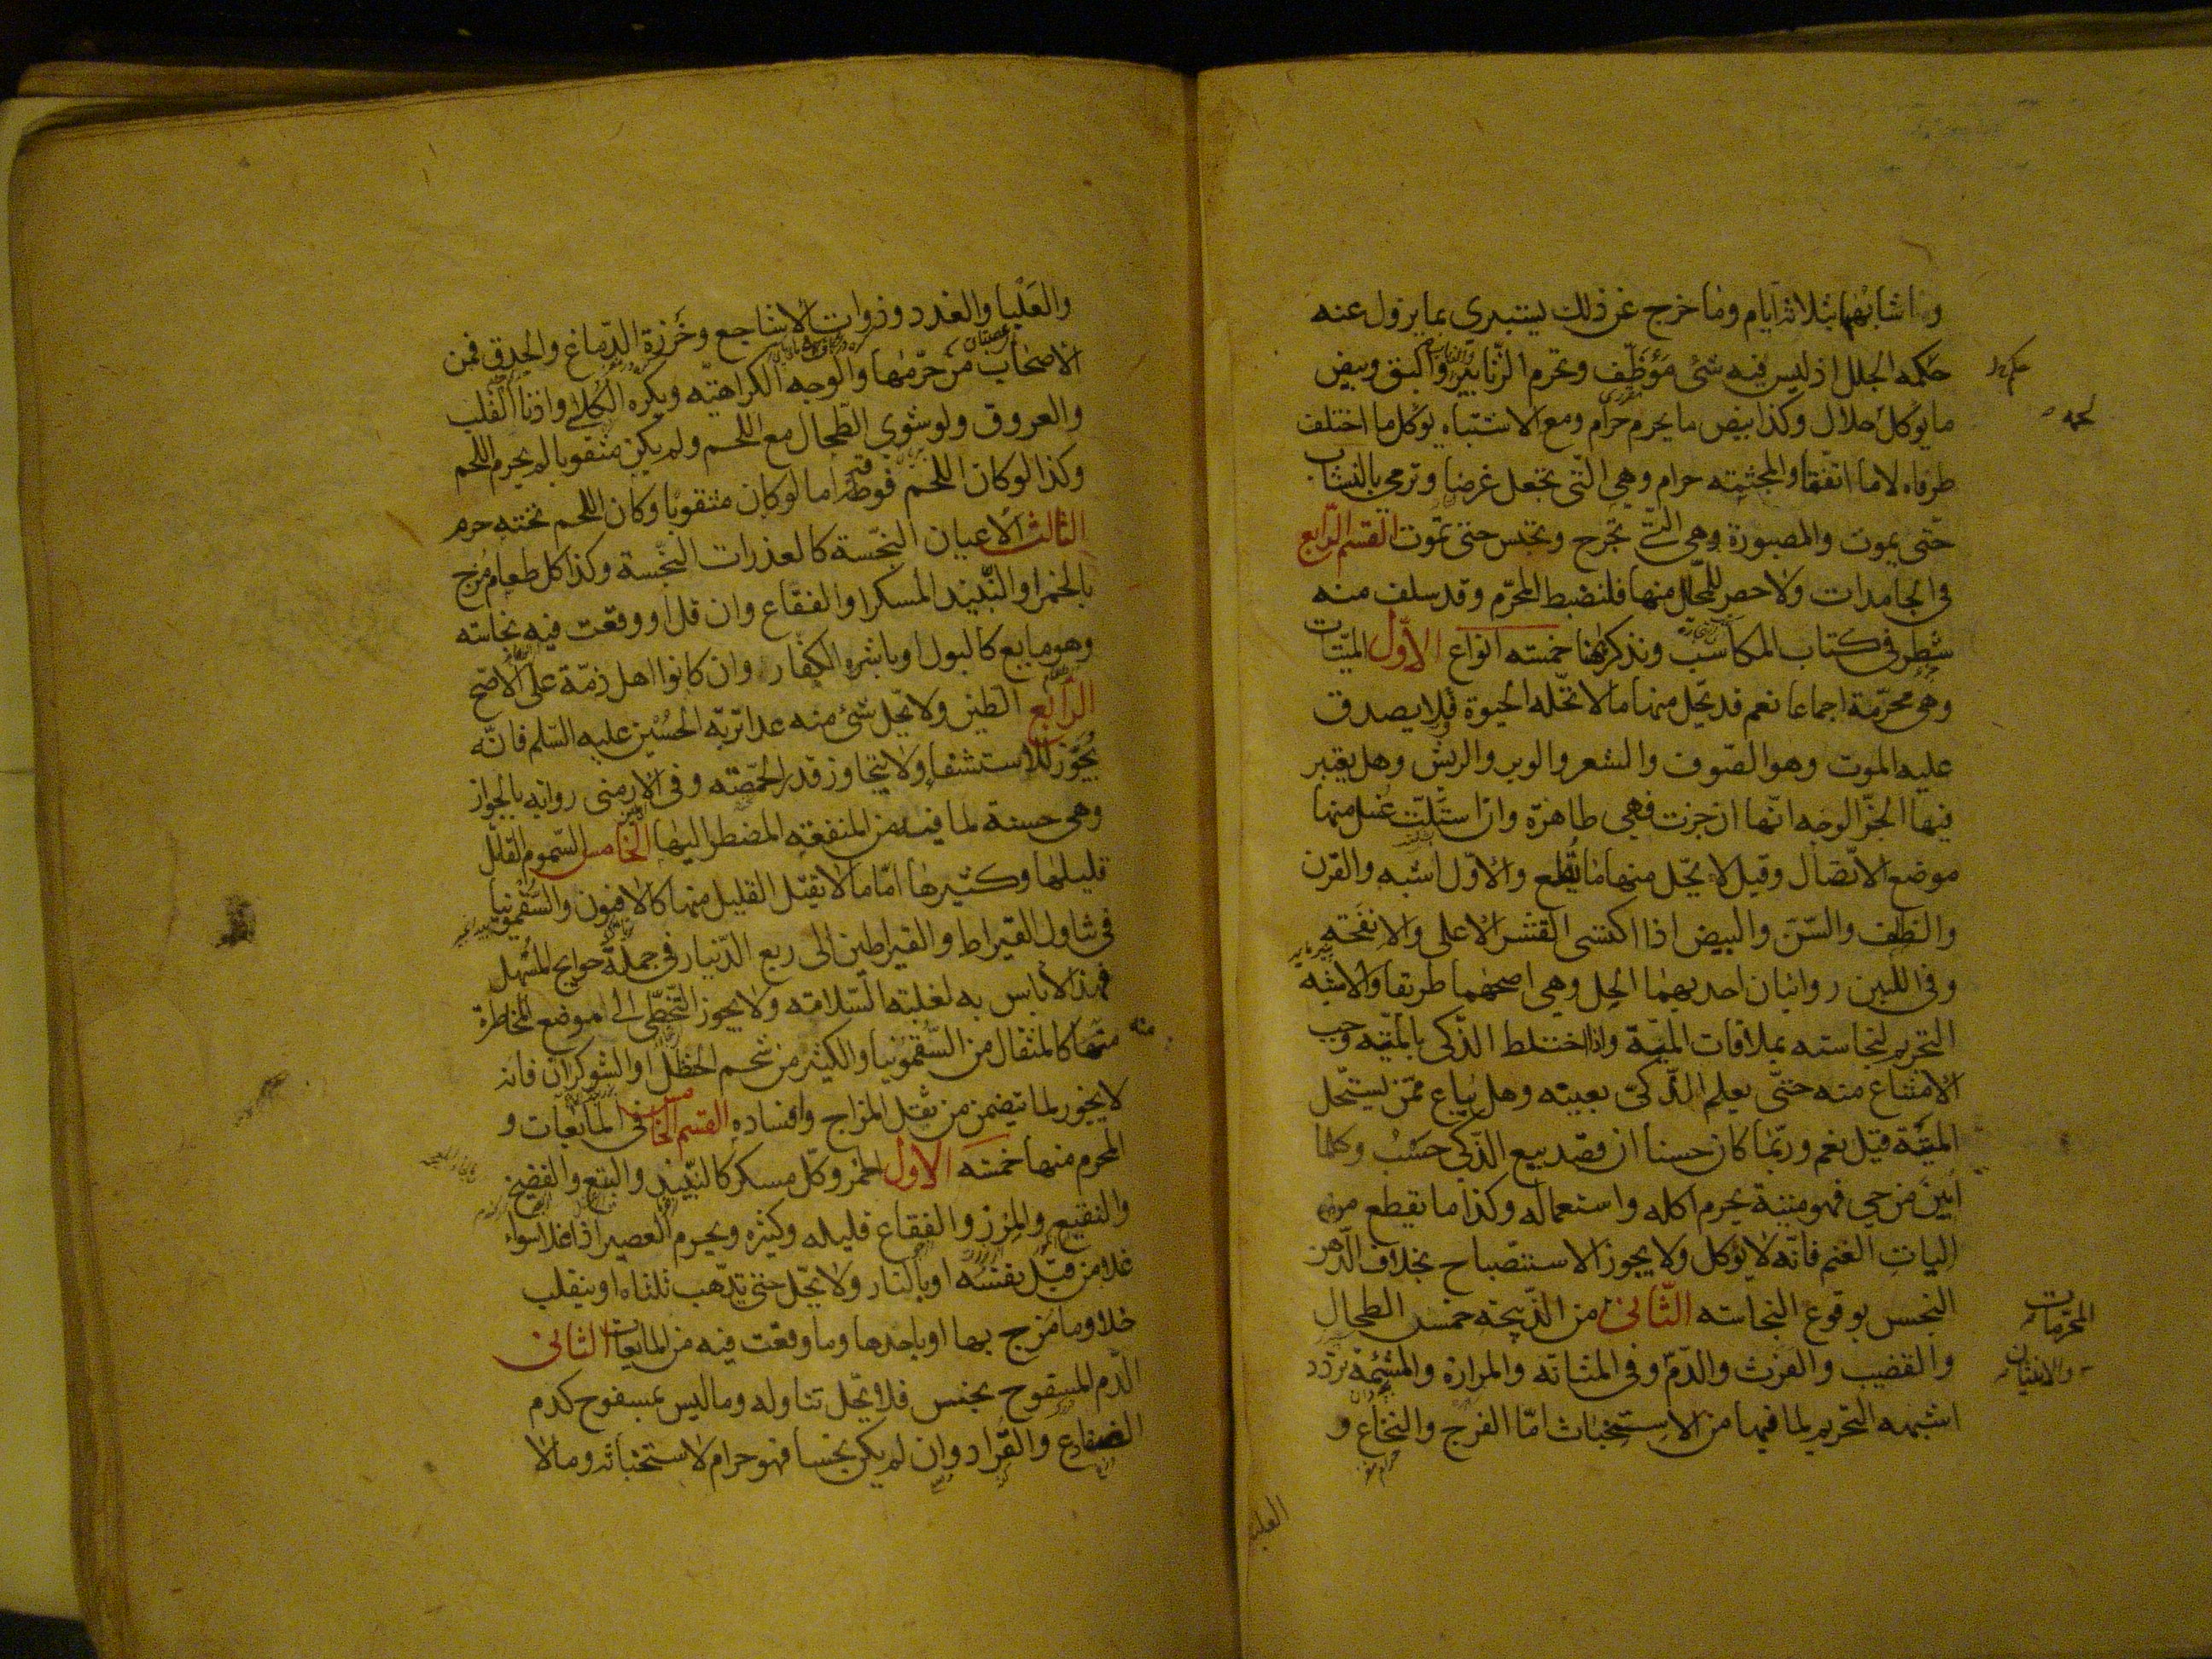 وما شابهها بثلاثة ايام وما خرج عن ذلك يستبرئ بما يزول عنه
حكمه الجلل اذ ليس فيه شئ مؤظّف ويحرم الزنابير والبق وبيض
ما يوكل حلال وكذا بيض ما يحرم حرام ومع الاشتباه يوكل ما اختلف
طرفاه لا ما اتفقا والمجثمه حرام وهي التي تجعل غرضا وترمى بالنشاب
حتى يموت والمصبورة وهي التي تجرح وتحبس حتى تموت القسم الرابع
في الجامدات ولا حصر للمحلل منها فلنضبط المحرم وقد سلف منه
شطر في كتاب المكاسب ونذكر هنا خمسه انواع الاول الميتات
وهي محرمة اجماعا نعم قد يحل منها ما لا تحله الحيوة فلا يصدق
عليه الموت وهو الصوف والشعر والوبر والريش وهل يعتبر
فيها الجز الوجه انها ان جزت فهي طاهرة وان استلت غسل منها
موضع الاتصال وقيل لا يحل منها ما يقلع والاول اشبه والقرن
والظلف والسن والبيض اذا اكتسى القشر الاعلى والانفحه
وفي اللبن روايتان احديهما الحل وهي اصحهما طريقا والاشبه
التحريم لنجاسته بملاقات الميتة واذا اختلط الذكى بالميته وجب
الامتناع منه حتى يعلم الذكى بعينه وهل يباع ممن يستحل
الميتة قيل نعم وربما كان حسنا ان قصد بيع الذكى حسب وكلما
ابين من حي فهو ميتة يحرم اكله واستعماله وكذا ما يقطع من
اليات الغنم فانه لا يؤكل ولا يجوز الاستصباح بخلاف الدهن
النجس بوقوع النجاسته الثانى من الذبيحه خمس الطحال
والقضيب والفرث والدم وفي المثانه والمرارة والمشيمة تردد
اشبهه التحريم لما فيها من الاستخباث امّا الفرج والنخاع و
لحمه
المحرمات
والانثيان
والعلبا والغدد وذوات الاشاجع وخرزة الدماغ والحدق فمن
الاصحاب من حرمها والوجه الكراهيه ويكره الكلى واذنا القلب
والعروق ولو شوي الطحال مع اللحم ولم يكن مثقوبا لم يحرم اللحم
وكذا لو كان اللحم فوقه اما لو كان مثقوبا وكان اللحم تحته حرم
الثالث الاعيان النجسة كالعذرات النجسة وكذا كل طعام مزج
بالخمر او النبيذ المسكر او الفقاع وان قل او وقعت فيه نجاسته
وهو مايع كالبول او باشره الكفار وان كانوا اهل ذمة على الاصح
الرابع الطين ولا يحل شئ منه عدا تربة الحسين عليه السلم فانه
يجوز للاستشفا ولا يتجاوز قدر الحمصه وفي الارمنى روايه بالجواز
وهي حسنة لما فيه من المنفعه المضطر اليها الخامس السموم القاتل
قليلها وكثيرها امّا ما لا يقتل القليل منها كالافيون والسقمونيا
في تناول القيراط والقيراطين الى ربع الدينار في جملة حوايج المسهل
فهذا لا باس به لغلبته السلامته ولا يجوز التخطى الى موضع المخاطرة
منه
منها كالمثقال من السقمونيا والكثير من شحم الحنظل او الشوكران فانه
لا يجوز لما يتضمن من ثقل المزاج وافساده القسم الخامس في المايعات و
المحرم منها خمسته الاول الخمر وكل مسكر كالنبيذ والبتع والفضيخ
والنقيع والمزر والفقاع قليله وكثيره ويحرم العصير اذا غلا سواء
غلا من قبل نفسه او بالنار ولا يحل حتى يذهب ثلثاه او ينقلب
خلا وما مزج بها او باحدها وما وقعت فيه من المايعات الثانى
الدم المسفوح نجس فلا يحل تناوله وما ليس بمسفوح كدم
الضفادع والقراد وان لم يكن نجسا فهو حرام لاستخباثه وما لا